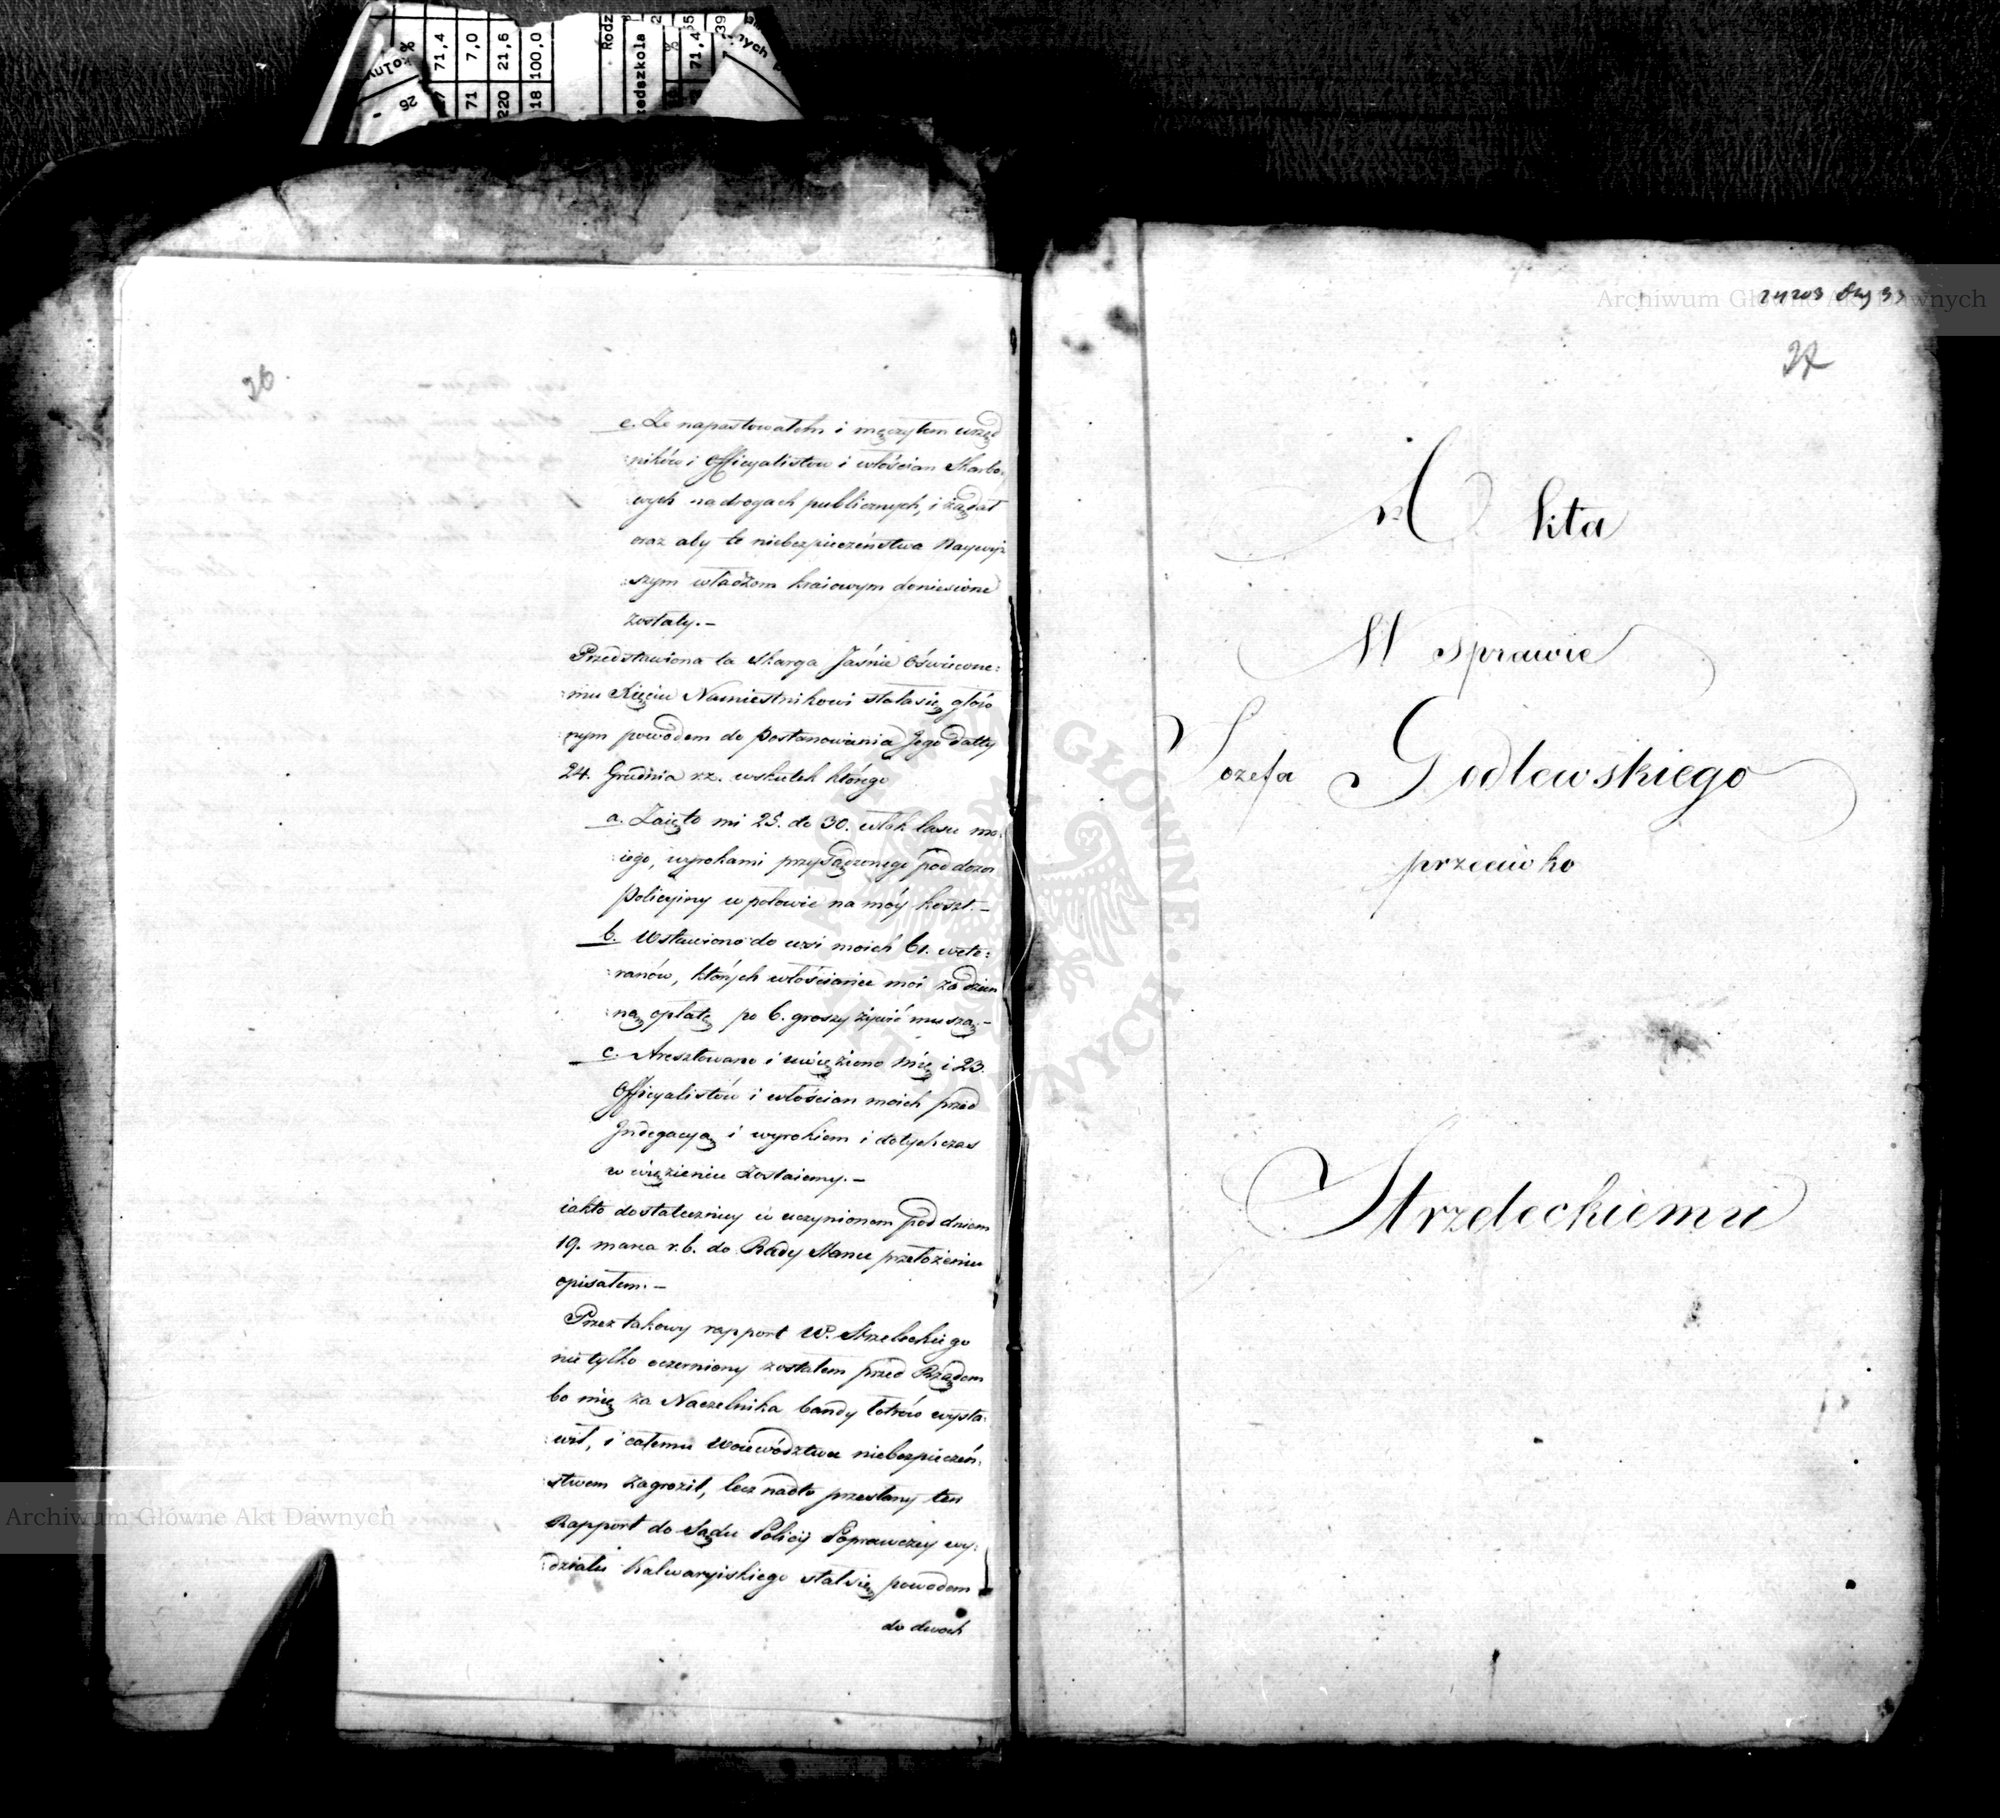 26.
e. Że napastowałem i męczyłem urzęd
:ników i Officyalistow i włościan Skarbo:
:wych na drogach publicznych, i żądał
oraz aby te niebezpieczeństwa Naywyż
:szym władzom kraiowym doniesione
zostały. –
Przedstawiona ta skarga Jaśnie Oświecone:
:mu Xięciu Namiestnikowi stała się głów
:nym powodem do Postanowienia Jego datty
24. Grudnia r.z. wskutek którego
a. Zaięto mi 25. do 30. włók lasu mo:
:iego, wyrokami przysądzonego pod dozor
Policyiny w połowie na móy koszt. –
b. Wstawiono do wsi moich 61. wete:
:ranów, których włościanie moi za dzien
:ną opłatą po 6. groszy żywić muszą. –
c. Aresztowano i uwięziono mię i 23.
Officyalistów i włościan moich przed
Indagacyą i wyrokiem i dotychczas
w więzieniu zostaiemy. –
iak to dostateczniey w uczynionem pod dniem
19. marca r.b. do Rady Stanu przełożeniu
opisałem. –
Przez takowy rapport W. Strzeleckiego
nie tylko oczerniony zostałem przed Rządem
bo mię za Naczelnika bandy łotrów wysta:
:wił, i całemu Woiewództwu niebezpieczeń:
:stwem zagroził, lecz nadto przesłany ten
Rapport do Sądu Policyi Poprawczey wy:
:działu Kalwaryiskiego stał się powodem
do dwoch
27
Akta
W sprawie
Jozefa Godlewskiego
przeciwko
Strzeleckiemu
Archiwum Główne Akt Dawnych
Archiwum Główne Akt Dawnych
ARCHIWUM GŁÓWNE AKT DAWNYCH
71,4
7,0
21,6
100,0
71
220
18
Rodz
zedszkola
%
71,4
26